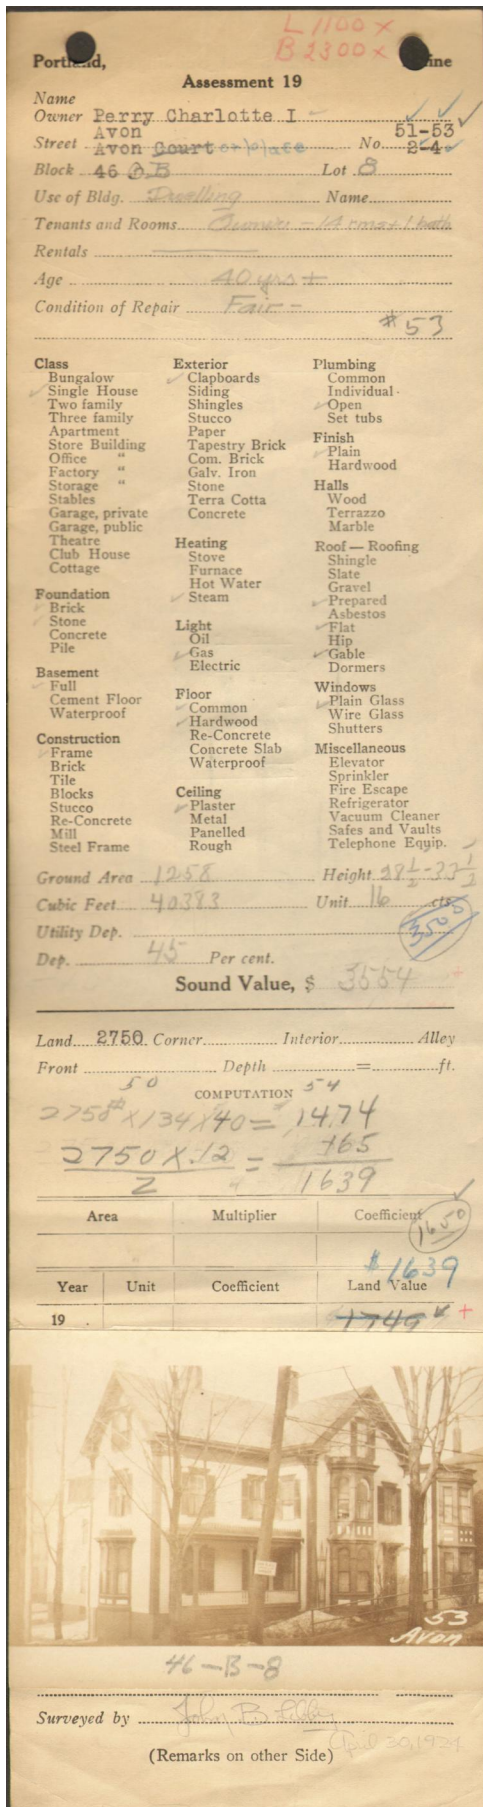 L 1100 x
B 2300 x
Portland, Maine
Assessment 19
Name
Owner Perry Charlotte I
Avon 51-53
Street Avon Court or place No. 2-4
Block 46 B Lot 8
Use of Bldg. Dwelling Name
Tenants and Rooms Owner - 14 rms + 1 bath
Rentals
Age 40 yrs +
Condition of Repair Fair -
#53
Class
Bungalow
Single House
Two family
Three family
Apartment
Store Building
Office "
Factory "
Storage "
Stables
Garage, private
Garage, public
Theatre
Club House
Cottage
Foundation
Brick
Stone
Concrete
Pile
Basement
Full
Cement Floor
Waterproof
Construction
Frame
Brick
Tile
Blocks
Stucco
Re-Concrete
Mill
Steel Frame
Exterior
Clapboards
Siding
Shingles
Stucco
Paper
Tapestry Brick
Com. Brick
Galv. Iron
Stone
Terra Cotta
Concrete
Heating
Stove
Furnace
Hot Water
Steam
Light
Oil
Gas
Electric
Floor
Common
Hardwood
Re-Concrete
Concrete Slab
Waterproof
Ceiling
Plaster
Metal
Panelled
Rough
Plumbing
Common
Individual
Open
Set tubs
Finish
Plain
Hardwood
Halls
Wood
Terrazzo
Marble
Roof — Roofing
Shingle
Slate
Gravel
Prepared
Asbestos
Flat
Hip
Gable
Dormers
Windows
Plain Glass
Wire Glass
Shutters
Miscellaneous
Elevator
Sprinkler
Fire Escape
Refrigerator
Vacuum Cleaner
Safes and Vaults
Telephone Equip.
Ground Area 1258 Height 28½-33½
Cubic Feet 40383 Unit 16 cts.
Utility Dep. 3500
Dep. 45 Per cent.
Sound Value, $ 3554 +
Land 2750 Corner Interior Alley
Front Depth = ft.
50 COMPUTATION 54
2750# x 134 x 40 = 1474
2750 x .12 = 165
2 1639
Area Multiplier Coefficient 1650
$1639
Year Unit Coefficient Land Value
19 1749 +
53
Avon
46-B-8
Surveyed by John B. Libby
April 30, 1924
(Remarks on other Side)